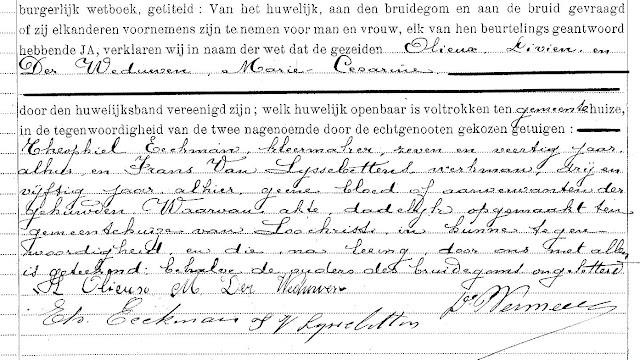 burgerlijk wetboek, getiteld : Van het huwelijk, aan den bruidegom en aan de bruid gevraagd
of zij elkanderen voornemens zijn te nemen voor man en vrouw, elk van hen beurtelings geantwoord
hebbende JA, verklaren wij in naam der wet dat de gezeiden Olieux, Livien, en
Der Weduwen, Marie-Cesarine
door den huwelijksband vereenigd zijn ; welk huwelijk openbaar is voltrokken ten gemeentehuize,
in de tegenwoordigheid van de twee nagenoemde door de echtgenooten gekozen getuigen :
Theophiel Eeckman, kleermaker, zeven en veertig jaar,
alhier en Frans Van Lysebettens, werkman, drij en
vijftig jaar alhier, geene bloed of aanverwanten der
gehuwden Waarvan akte dadelijk opgemaakt ten
gemeentehuize van Loochristi, in hunne tegen-
woordigheid en die na lezing door ons met allen
is geteekend: behalve de ouders des bruidegoms ongeletterd
Olieux M. Der Weduwen
Th. Eeckman Lysebetten Vermeu